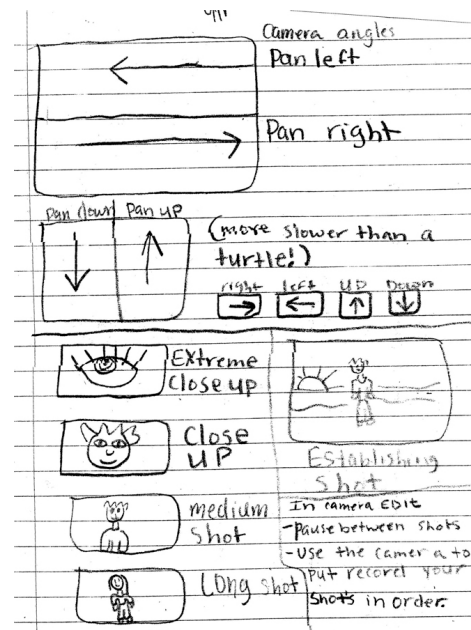 Camera angles
Pan left
Pan right
Pan down Pan up
(more slower than a
turtle!)
right left UP Down
EXtreme
Close up
Close
UP
medium
Shot
Long shot
Establishing
Shot
In camera EDit
-Pause between shots
-Use the camera to
Put record your
Shots in order.